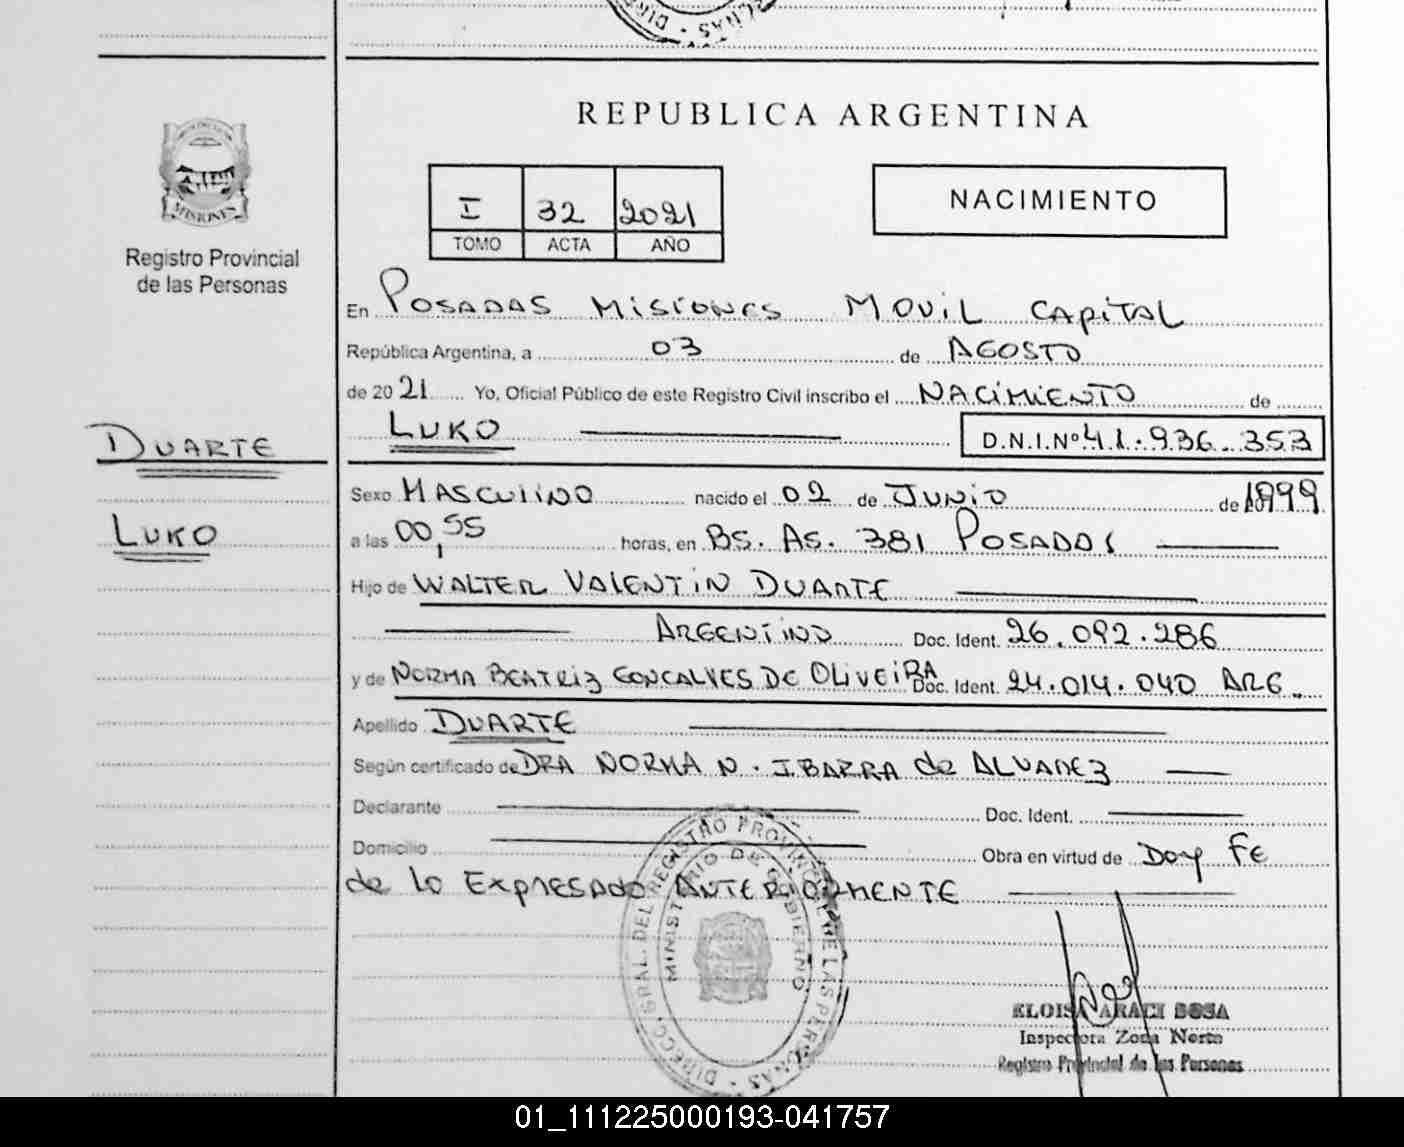 REPUBLICA ARGENTINA
I 32 2021
TOMO ACTA AÑO
NACIMIENTO
MISIONES
Registro Provincial
de las Personas
En POSADAS MISIONES MOVIL CAPITAL
República Argentina, a 03 de AGOSTO
de 2021 Yo, Oficial Público de este Registro Civil inscribo el NACIMIENTO de
LUKO D.N.I.Nº 41.936.353
DUARTE
LUKO
Sexo MASCULINO nacido el 02 de JUNIO de 1999
a las 00,55 horas, en BS. AS. 381 POSADAS
Hijo de WALTER VALENTIN DUARTE
ARGENTINO Doc. Ident. 26.092.286
y de NORMA BEATRIZ GONCALVES DE OLIVEIRA Doc. Ident. 24.014.040 ARG.
Apellido DUARTE
Según certificado de DRA NORMA N. IBARRA de ALVAREZ
Declarante Doc. Ident.
Domicilio Obra en virtud de Doy Fe
de lo Expresado ANTERIORMENTE
DIRECC. GRAL. DEL REGISTRO PROVINCIAL DE LAS PERSONAS
MINISTERIO DE GOBIERNO
ELOISA ARACI SOSA
Inspectora Zona Norte
Registro Provincial de las Personas
01_111225000193-041757